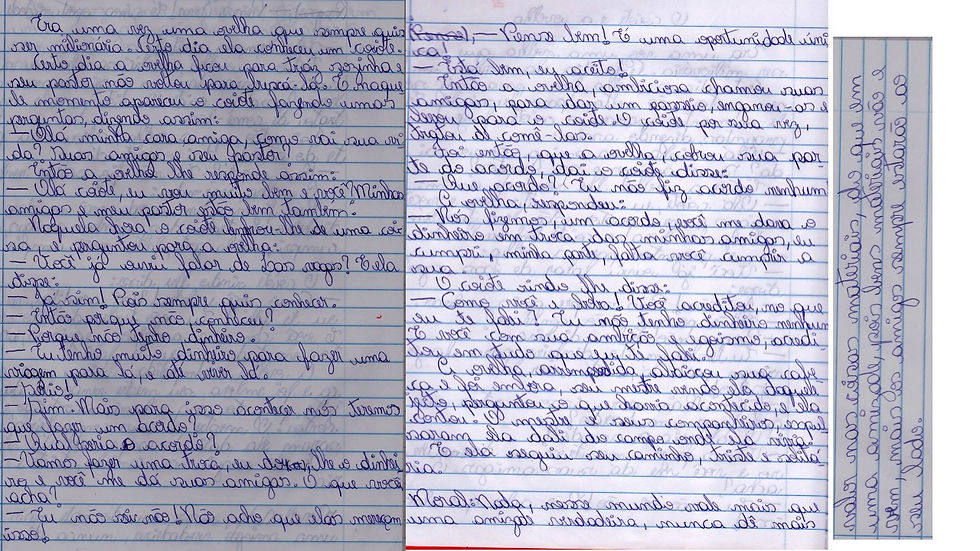 Era uma vez uma ovelha que sempre quis
ser milionária. Certo dia ela conheceu um coiote.
Certo dia a ovelha ficou para trás sozinha e
seu pastor não voltou para buscá-la. E naque
de momento apareceu o coiote fazendo umas
perguntas, dizendo assim:
— Olá minha cara amiga, como vai sua vi
da? Suas amigas e seu pastor?
Então a ovelha lhe responde assim:
— Olá coiote, eu vou muito bem e você? Minhas
amigas e meu pastor estão bem também.
Naquela hora o coiote lembrou-lhe de uma coi
sa e perguntou para a ovelha:
— Você já ouviu falar de Las vegas? E ela
disse:
— Já sim! Pois sempre quis conhecer.
— Então porque não conheceu?
— Porque não tenho dinheiro.
— Eu tenho muito dinheiro para fazer uma
viagem para lá, e até viver lá.
— Sério!
— Sim. Mais para isso acontecer nós teremos
que fazer um acordo?
— Qual seria o acordo?
— Vamos fazer uma troca, eu lhe o dinhei
ro e você me dá suas amigas. O que você
acha?
— Eu não sei não! Não acho que elas mereçam
isso!
— Pense bem! É uma oportunidade úni
ca!
— Está bem, eu aceito!
Então a ovelha, ambiciosa chamou suas
amigas, para dar um passeio, enganou-as e
levou para o coiote. O coiote por sua vez,
tratou de comê-las.
Foi então, que a ovelha, cobrou sua par
te do acordo, daí o coiote disse:
— Que acordo? Eu não fiz acordo nenhum
A ovelha, respondeu:
— Nós fizemos, um acordo, você me dava o
dinheiro em troca das minhas amigas, eu
cumpri, minha parte, falta você cumprir a
sua.
O coiote rindo lhe disse:
— Como você é besta! Você acreditou, no que
eu te falei! Eu não tenho dinheiro nenhum
E você com sua ambição e egoismo, acredi-
tou em tudo que eu te falei.
A ovelha, arrependida, abaixou sua cabe
ça e foi embora, seu mestre vendo ela daquele
jeito perguntou, o que havia acontecido, e ela
contou. O mestre e seus companheiros, expul
saram ela dali do campo onde ela vivia.
E ela seguiu seu caminho, triste e solitá-
ria.
Moral: Nada, nesse mundo vale mais que
uma amizade verdadeira, nunca dê mais
valor nas coisas materiais, do que em
uma amizade, pois bens materiais vão e
vem, mais os amigos sempre estarão ao
seu lado.